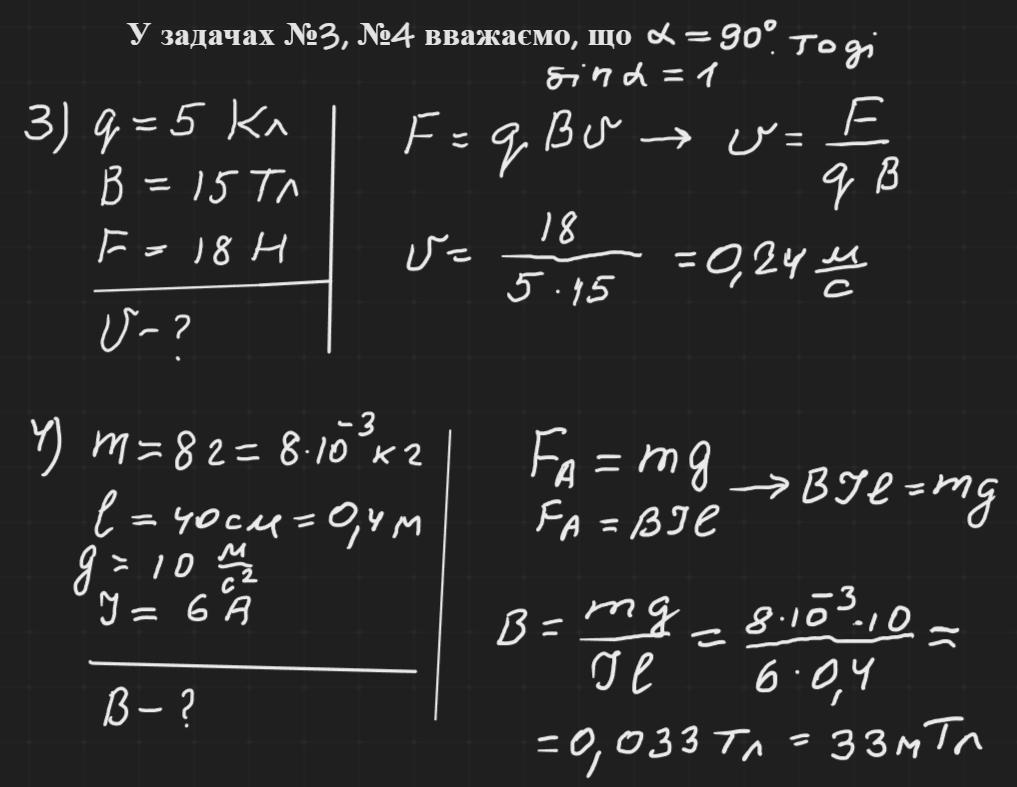 У задачах №3, №4 вважаємо, що α = 90°. Тоді
sin α = 1
3) q = 5 Кл
B = 15 Тл
F = 18 Н
υ - ?
F = q B υ → υ = F / q B
υ = 18 / 5 · 15 = 0,24 м/с
4) m = 8 г = 8·10⁻³ кг
l = 40 см = 0,4 м
g = 10 м/с²
I = 6 А
B - ?
F_A = mg
F_A = BIl
→ BIl = mg
B = mg / Il = 8·10⁻³·10 / 6·0,4 =
= 0,033 Тл = 33 мТл